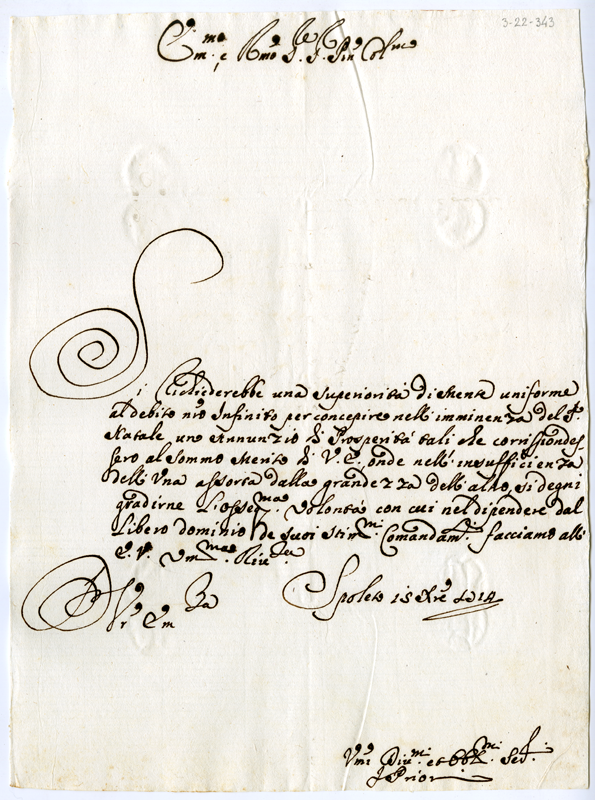 3-22-343
Em.mo e Rmo Sr. Sr. Prin Col.mo
Si Richiederebbe una superiorità di Mente uniforme
al debito nro Infinito per concepire nell' imminenza del S.
Natale, un Annunzio di Prosperità tali che corrispondes-
sero al sommo Merito di V. E., onde nell' insufficienza
dell' Una assorta dalla grandezza dell' altro, si degni
gradirne L'osseq.ma volontà con cui nel dipendere dal
Libero dominio de suoi Stim.mi Comandam.ti facciamo all'
E. V. Um.mma Riv.za
Di V.ra Em.za
Spoleto 15 Xbre 1714
Vmi Div.mi et Obbl.mi Ser.
I Priori